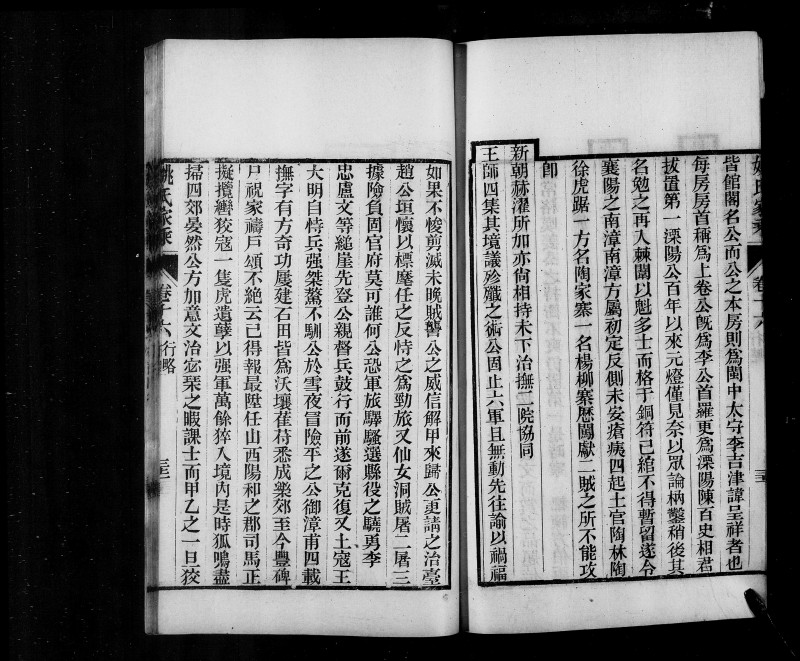 皆館閣名公而公之本房則爲閩中太守李吉津諱呈祥者也
每房房首稱爲上卷公旣爲李公首羅更爲溧陽陳百史相君
拔置第一溧陽公百年以來元燈僅見奈以眾論枘鑿稍後其
名勉之再入棘闈以魁多士而格于銅符已綰不得暫留遂令
襄陽之南漳南漳方屬初定反側未安瘡痍四起土官陶林陶
徐虎踞一方名陶家寨一名楊柳寨歷闖獻二賊之所不能攻
卽
新朝赫濯所加亦尙相持未下治撫二院協同
王師四集其境議殄殲之術公固止六軍且無動先往諭以禍福
如果不悛剪滅未晚賊讋公之威信解甲來歸公更請之治臺
趙公垣懷以標麾任之反恃之爲勁旅又仙女洞賊屠二屠三
據險負固官府莫可誰何公恐軍旅驛騷選縣役之驍勇李
忠盧文等縋崖先登公親督兵鼓行而前遂爾克復又土寇王
大明自恃兵强桀驁不馴公於雪夜冒險平之公御漳甫四載
撫字有方奇功屢建石田皆爲沃壤萑苻悉成樂郊至今豐碑
尸祝家禱戸頌不絶云已得報最陞任山西陽和之郡司馬正
擬攬轡狡寇一隻虎遣孽以强軍萬餘猝入境內是時狐鳴盡
掃四郊晏然公方加意文治宓琹之暇課士而甲乙之一旦狡
姚氏家乘
卷十六
行略
三十二